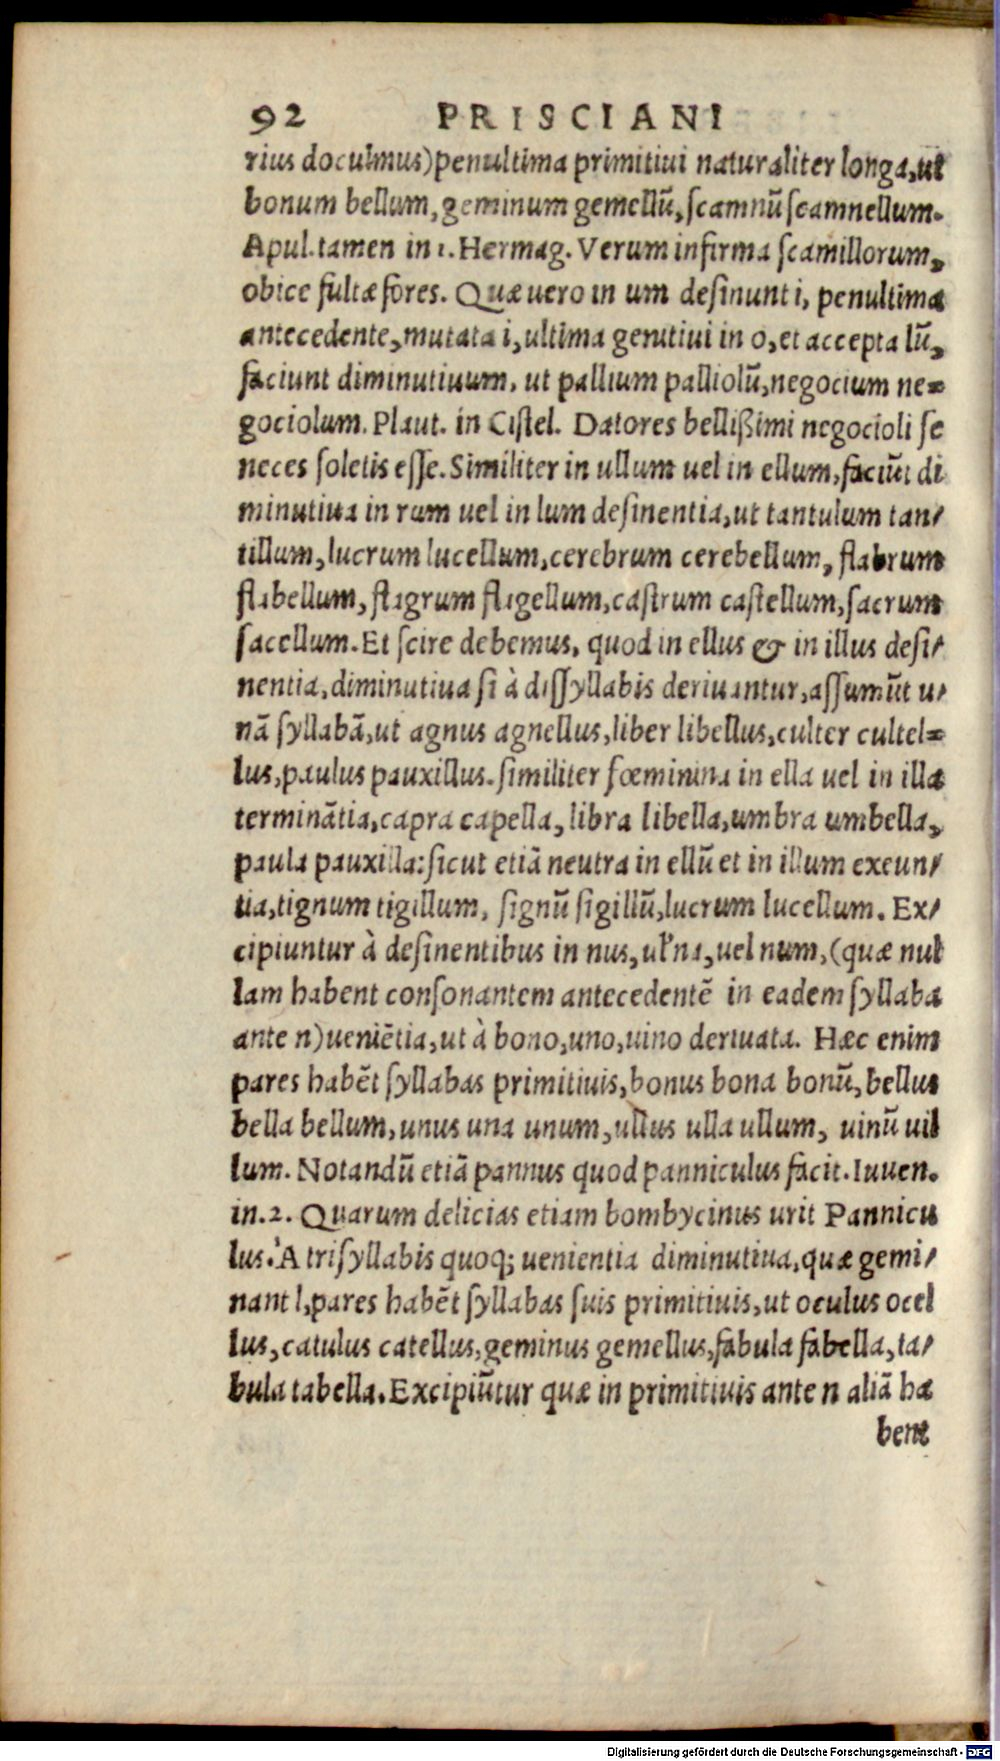 92 PRISCIANI
rius docuimus) penultima primitiui naturaliter longa, ut
bonum bellum, geminum gemellũ, scamnũ scamnellum.
Apul. tamen in 1. Hermag. Verum infirma scamillorum,
obice fultæ fores. Quæ uero in um desinunt i, penultima
antecedente, mutata i, ultima genitiui in o, et accepta lũ,
faciunt diminutiuum, ut pallium palliolũ, negocium ne=
gociolum. Plaut. in Cistel. Datores bellißimi negocioli se
neces soletis esse. Similiter in ullum uel in ellum, faciũt di
minutiua in rum uel in lum desinentia, ut tantulum tan/
tillum, lucrum lucellum, cerebrum cerebellum, flabrum
flabellum, flagrum flagellum, castrum castellum, sacrum
sacellum. Et scire debemus, quod in ellus & in illus desi/
nentia, diminutiua si à dissyllabis deriuantur, assumũt u/
nã syllabã, ut agnus agnellus, liber libellus, culter cultel=
lus, paulus pauxillus. similiter fœminina in ella uel in illa
terminãtia, capra capella, libra libella, umbra umbella,
paula pauxilla: sicut etiã neutra in ellũ et in illum exeun/
tia, tignum tigillum, signũ sigillũ, lucrum lucellum. Ex/
cipiuntur à desinentibus in nus, uł na, uel num, (quæ nul
lam habent consonantem antecedentẽ in eadem syllaba
ante n) ueniẽtia, ut à bono, uno, uino deriuata. Hæc enim
pares habẽt syllabas primitiuis, bonus bona bonũ, bellus
bella bellum, unus una unum, ullus ulla ullum, uinũ uil
lum. Notandũ etiã pannus quod panniculus facit. Iuuen.
in. 2. Quarum delicias etiam bombycinus urit Pannicu
lus. À trisyllabis quoq; uenientia diminutiua, quæ gemi/
nant l, pares habẽt syllabas suis primitiuis, ut oculus ocel
lus, catulus catellus, geminus gemellus, fabula fabella, ta/
bula tabella. Excipiũtur quæ in primitiuis ante n aliã ha
bent
Digitalisierung gefördert durch die Deutsche Forschungsgemeinschaft - DFG